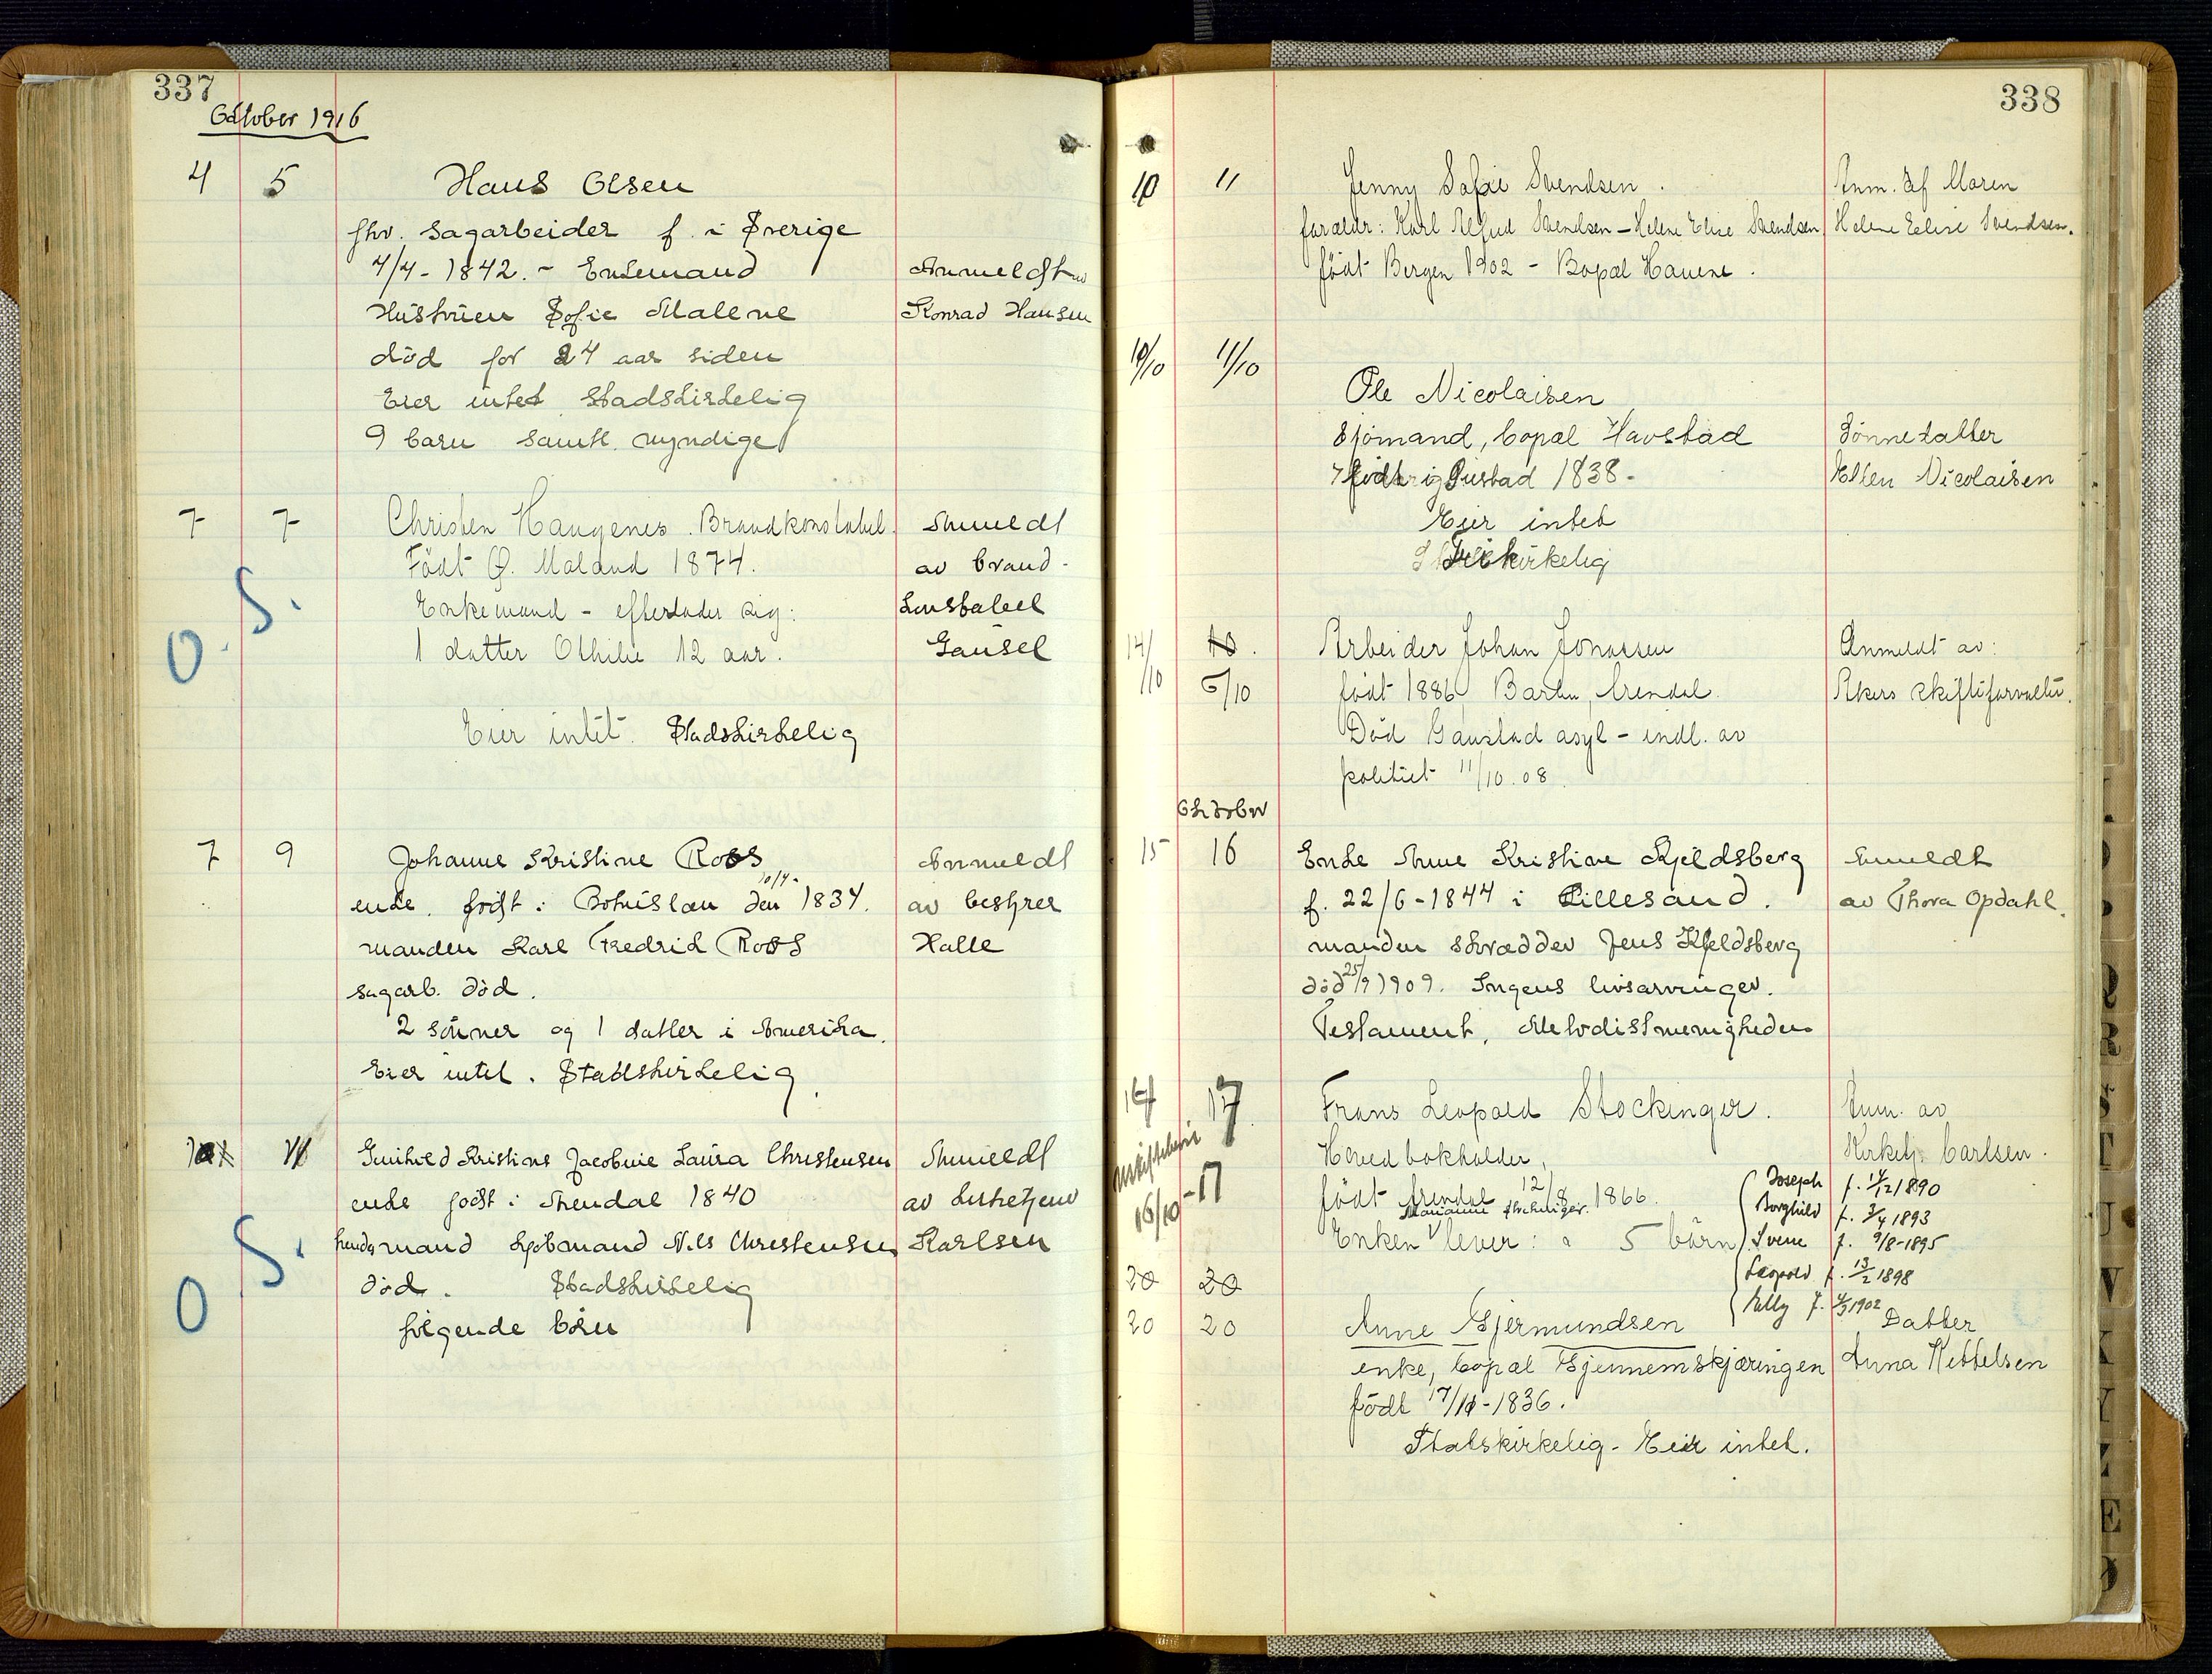 337
Oktober 1916
4 5 Hans Olsen
fhv. sagarbeider f. i Sverige
4/4-1842. - Enkemand
Anmeldt av
Hustruen Sofie Malene
Konrad Hansen
död for 24 aar siden
Eier intet Stadskirkelig
9 barn samtl. myndige
7 7 Christen Haugenes. Brandkonstabel.
Anmeldt
Födt Ø. Moland 1874.
av brand-
Enkemand - efterlader sig:
konstabel
1 datter Othilie 12 aar.
Gausel
O. S.
Eier intet. Stadskirkelig
7 9 Johanne Kristine Roos
Anmeldt
enke. født i Bohuslæn den 10/4- 1834.
av bestyrer
manden Karl Fredrik Roos
Halle
sagarb. död.
2 sönner og 1 datter i Amerika.
Eier intet. Stadskirkelig.
11 Gunhild Kristine Jacobine Laura Christensen
Anmeldt
enke født i Arendal 1840
av kirketjener
hendes mand Sjömand Nils Christensen
Karlsen
död. Stadskirkelig
O S.
følgende börn
338
10 11 Jenny Sofie Svendsen.
Anm. af Maren
forældr: Karl Alfred Svendsen - Helene Elise Svendsen
Helene Elise Svendsen.
födt Bergen 1902 - Bopæl Havene.
10/10 11/10
Ole Nicolaisen
Sjömand, bopæl Havstad
Sönnedatter
födt i Gustad 1838-
Ellen Nicolaisen
Eier intet
Frikirkelig
14/10 Arbeider Johan Jonassen
Anmeldt av:
6/10 födt 1886 Barbu, Arendal.
Akers skifteforvalter.
Död Gaustad asyl - indl. av
politiet 11/10.08
Oktober
15 16 Enke Anne Kristine Kjeldsberg
Anmeldt
f. 22/6-1844 i Lillesand.
av Thora Opdahl.
manden skrædder Jens Kjeldsberg
död 25/9 1909. Ingens livsarvinger.
Testament, Metodistmenigheden
14 17 Frans Leopold Stockinger.
Anm. av
Hovedbokholder,
Kirketj. Carlsen.
16/10-17
födt Arendal 12/8 1866.
Marianne Stockinger.
Enken lever: 5 börn
Joseph f. 14/12 1890
Borghild f. 3/4 1893
Sverre f. 9/8-1895
Leopold f. 13/2 1898
Nelly f. 4/3 1902
20 20
20 20 Anne Gjermundsen
Datter
enke, bopæl Gjennemskjæringen
Anna Kettelsen
födt 17/11-1836.
Statskirkelig- Eier intet.